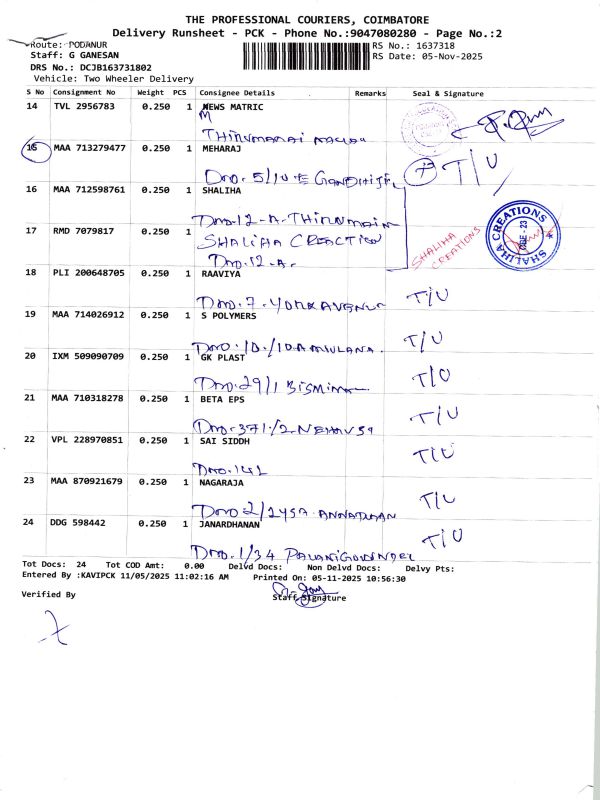 THE PROFESSIONAL COURIERS, COIMBATORE
Delivery Runsheet - PCK - Phone No.:9047080280 - Page No.:2
Route: PODANUR
RS No.: 1637318
Staff: G GANESAN
RS Date: 05-Nov-2025
DRS No.: DCJB163731802
Vehicle: Two Wheeler Delivery
S No Consignment No Weight PCS Consignee Details Remarks Seal & Signature
14 TVL 2956783 0.250 1 NEWS MATRIC
M
15 MAA 713279477 0.250 1 MEHARAJ
DNO. 5/10 E GANDHIJI T/U
16 MAA 712598761 0.250 1 SHALIHA
DNO.12-A. THIRUMAIN
17 RMD 7079817 0.250 1 SHALIHA CREACTION
DNO.12-A.
SHALIHA CREATIONS
SHALIHA CREATIONS CBE - 23
18 PLI 200648705 0.250 1 RAAVIYA
DNO. 7. YORK AVENUE T/U
19 MAA 714026912 0.250 1 S POLYMERS
T/U
20 IXM 509090709 0.250 1 GK PLAST
DNO.29/1 T/U
21 MAA 710318278 0.250 1 BETA EPS
DNO.371/2 T/U
22 VPL 228970851 0.250 1 SAI SIDDH
DNO.142 T/U
23 MAA 870921679 0.250 1 NAGARAJA
DNO T/U
24 DDG 598442 0.250 1 JANARDHANAN
DNO.1/34 T/U
Tot Docs: 24 Tot COD Amt: 0.00 Delvd Docs: Non Delvd Docs: Delvy Pts:
Entered By :KAVIPCK 11/05/2025 11:02:16 AM Printed On: 05-11-2025 10:56:30
Verified By Staff Signature